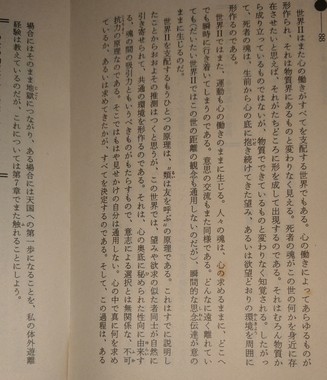 88
世界Ⅱはまた心の働きがすべてを支配する世界でもある。心の働きによってあらゆるものが
形作られ、それは物質界にあるものと変わりなく見える。死者の魂がこの世の何かを身近に存
在させたいと思えば、それがたちどころに形を成して出現するのである。それはむろん物質か
ら成り立っているものではないが、物質でできているものと変わりなく知覚される。したがっ
て、死者の魂は、生前から心の底に抱き続けてきた望み、あるいは欲望どおりの環境を周囲に
形作るのである。
世界Ⅱではまた、運動も心の働きのままに生じる。人々の魂は、心の求めるままに、どこへ
でも瞬時に行き着いてしまうのである。意思の交流もまた同様である。どんなに遠く離れてい
ても(だいたい世界Ⅱではこの世の距離の観念も通用しないのだが)、瞬間的な意念伝導が意の
ままに生じるのだ。
世界Ⅱを支配するもうひとつの原理は、〝類は友を呼ぶ〟の原理である。これはすでに説明し
たことからおおよその推測はつくと思うが、この世界では、望みや欲求の似た者同士が自然に
引き寄せられて、共通の環境を形作るのである。それは、心の奥底に秘められた性向に由来す
る、魂の間の吸引力ともいうべきものがもたらすもので、意志による選択とは無関係な、不可
抗力の原理なのである。そこではもはや見せかけの自分は通用しない。心の中で真に何を求め
ているか、あるいは求めてきたか、すべてを決定するのである。そして、この過程は、ある
場合にはそのまま地獄につながり、ある場合には天国への第一歩になることを、私の体外遊離
経験は教えているのだが、これについては第7章でまた触れることにしよう。